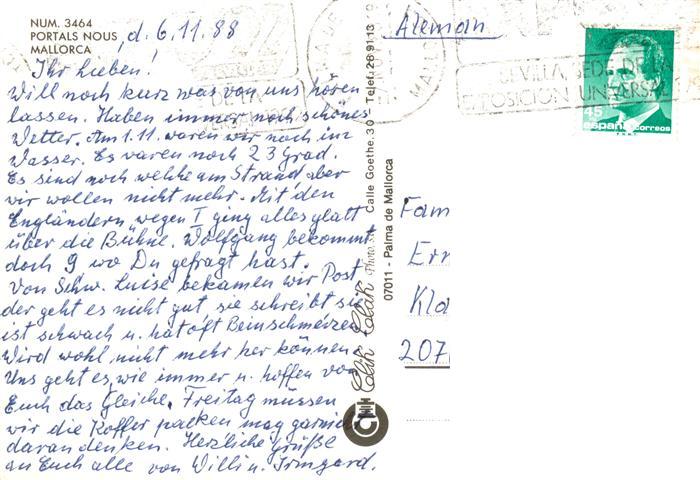 NUM. 3464
PORTALS NOUS
MALLORCA
, d. 6.11.88
Ihr Lieben!
Will noch kurz was von uns hören
lassen. Haben immer noch schönes
Wetter. Am 1.11. waren wir noch im
Wasser. Es waren noch 23 Grad.
Es sind noch welche am Strand aber
wir wollen nicht mehr. Mit den
Engländern wegen I ging alles glatt
über die Bühne. Wolfgang bekommt
doch 9 wo Du gefragt hast.
Von Schw. Luise bekamen wir Post
der geht es nicht gut, sie schreibt sie
ist schwach u. hat oft Beinschmerzen
Wird wohl nicht mehr her können.
Uns geht es, wie immer u. hoffen von
Euch das Gleiche. Freitag müssen
wir die Koffer packen mag garnicht
daran denken. Herzliche Grüße
an Euch alle von Willi u. Irmgard.
Clik Clak Photo Calle Goethe, 30 - Telef. 28 91 13
07011 - Palma de Mallorca
Aleman
DE LA
SEVILLA, SEDE DE LA
EXPOSICION UNIVERSAL
45
españa correos
Fam
Ern
Kla
207